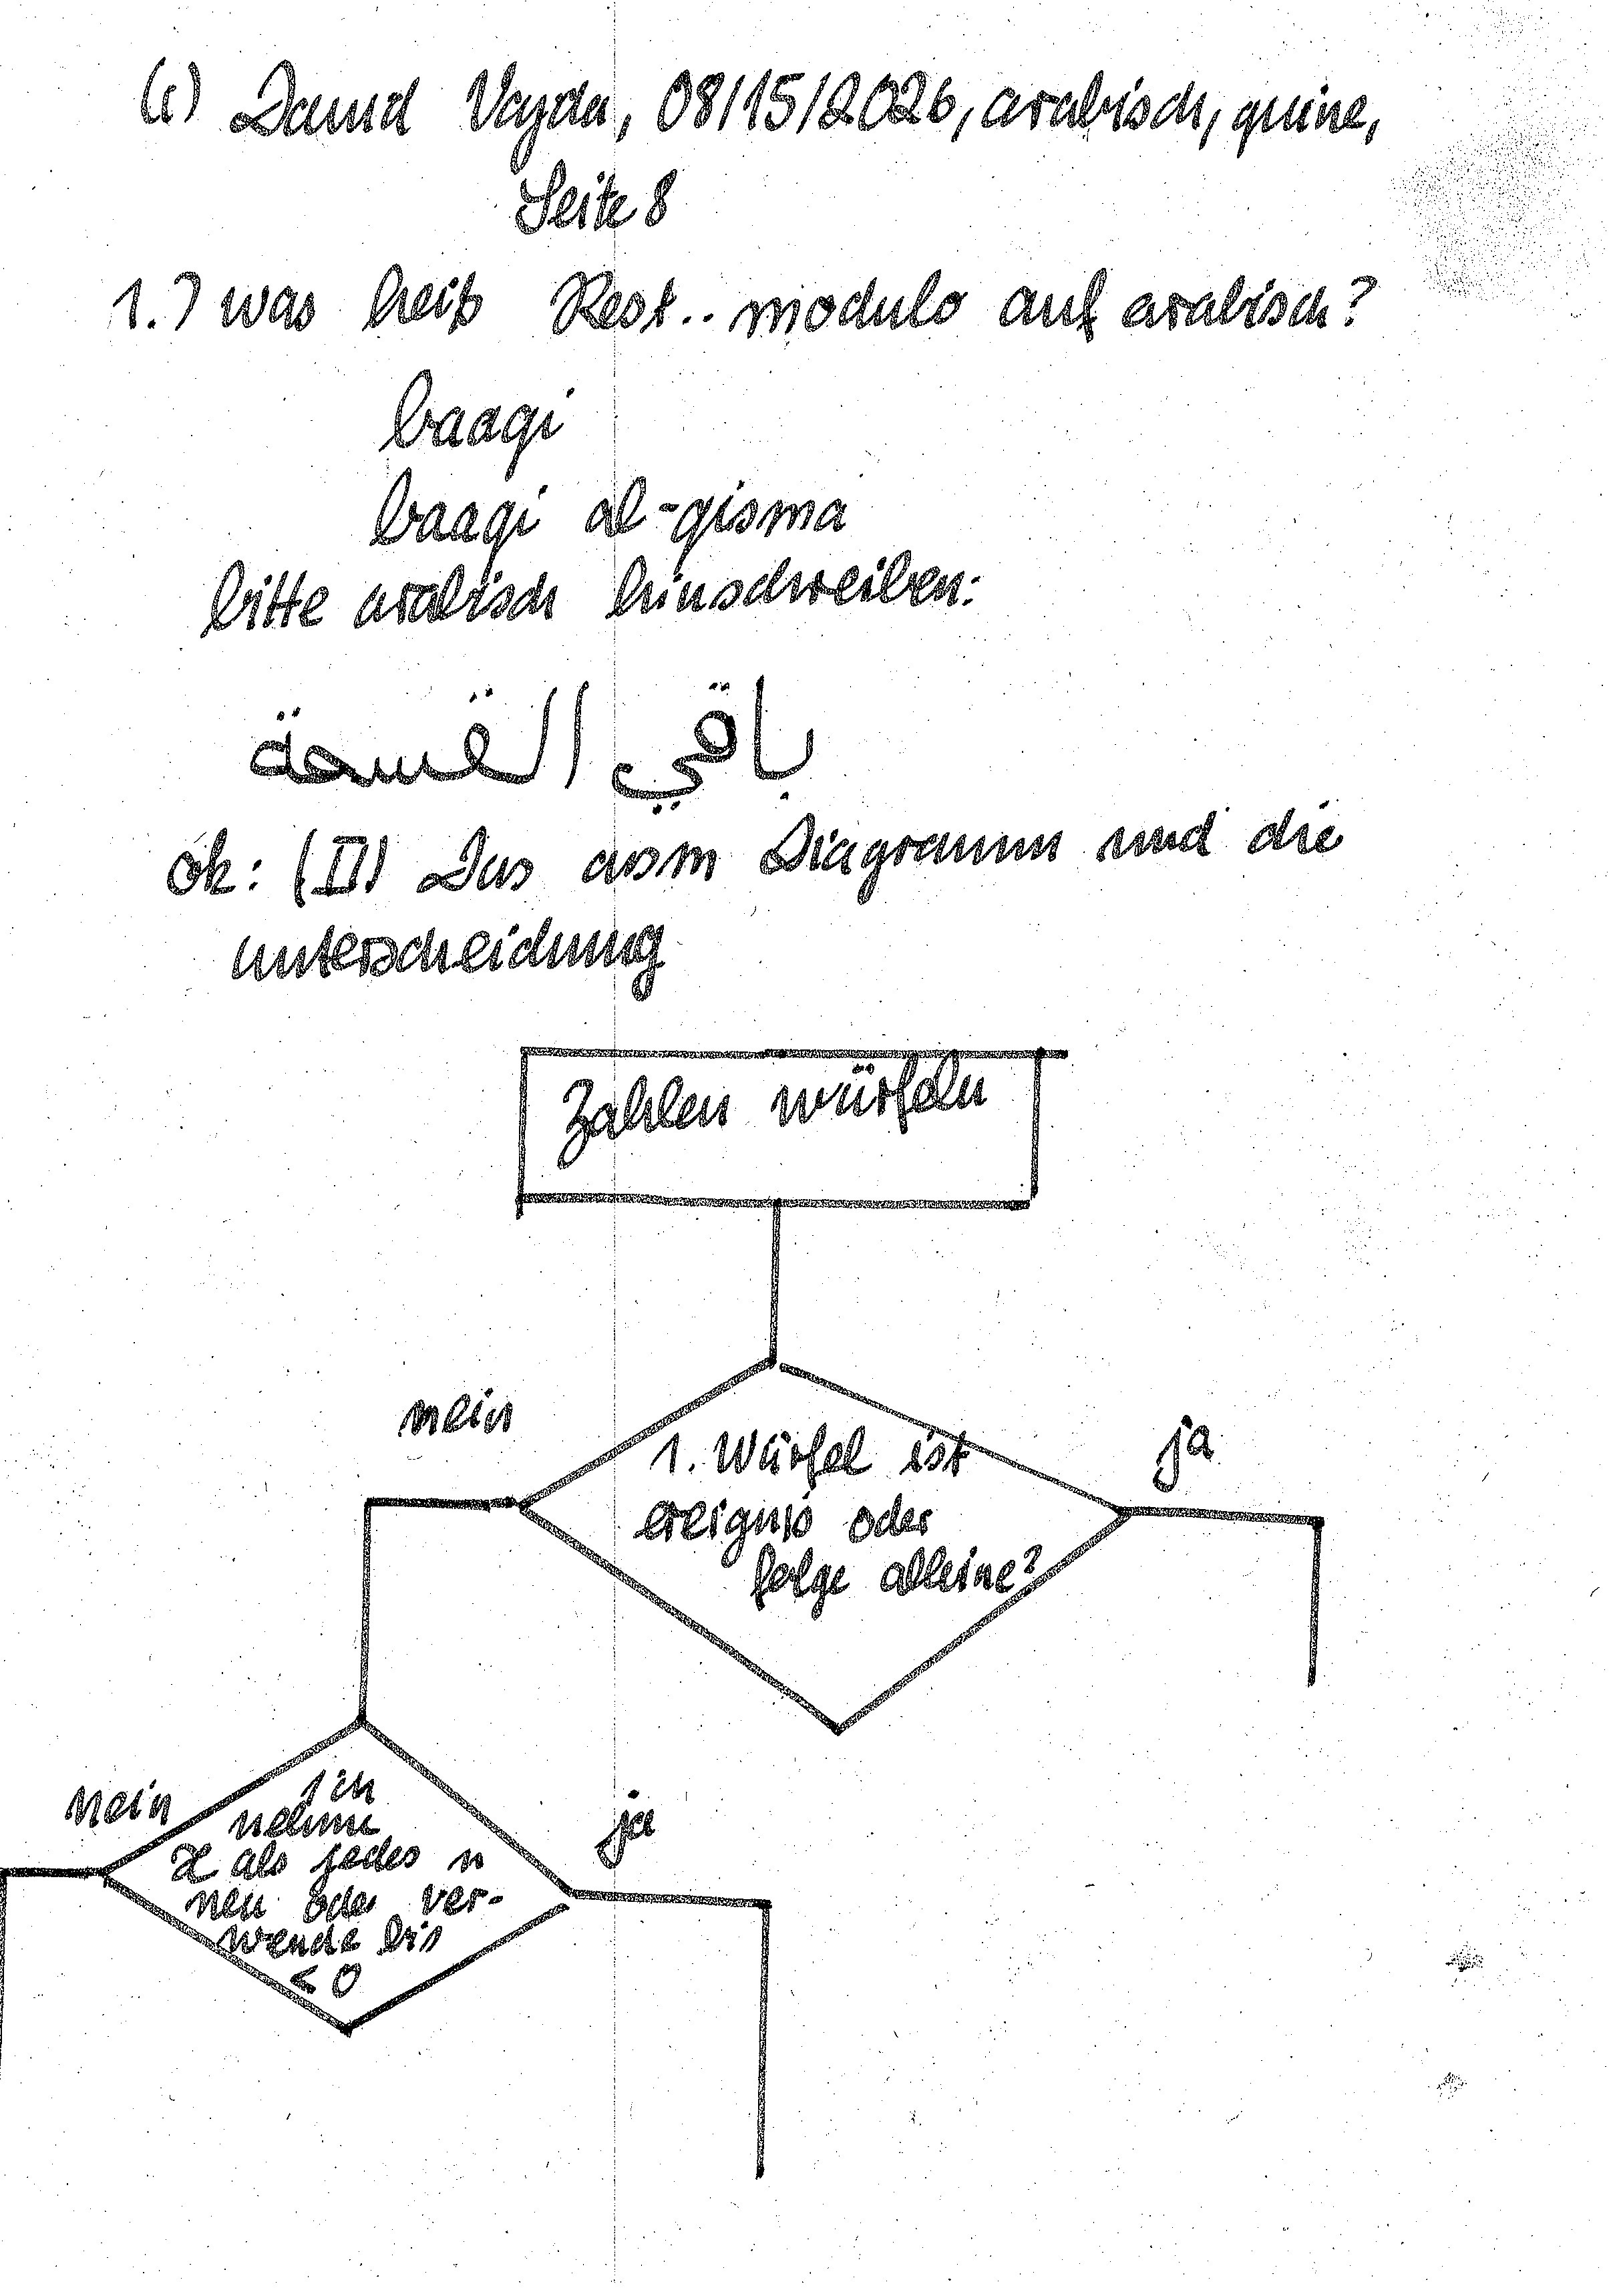 (c) David Vajda, 08/15/2026, arabisch, quine,
Seite 8
1.) was heiß Rest.. modulo auf arabisch?
baaqi
baaqi al-qisma
bitte arabisch hinschreiben:
باقي القسمة
ok: (II) Das asm Diagramm und die
unterscheidung
Zahlen würfeln
nein
ja
1. Würfel ist
ereignis oder
folge alleine?
nein
ja
ich
nehme
als jedes n
neu oder ver-
wende bis
< 0